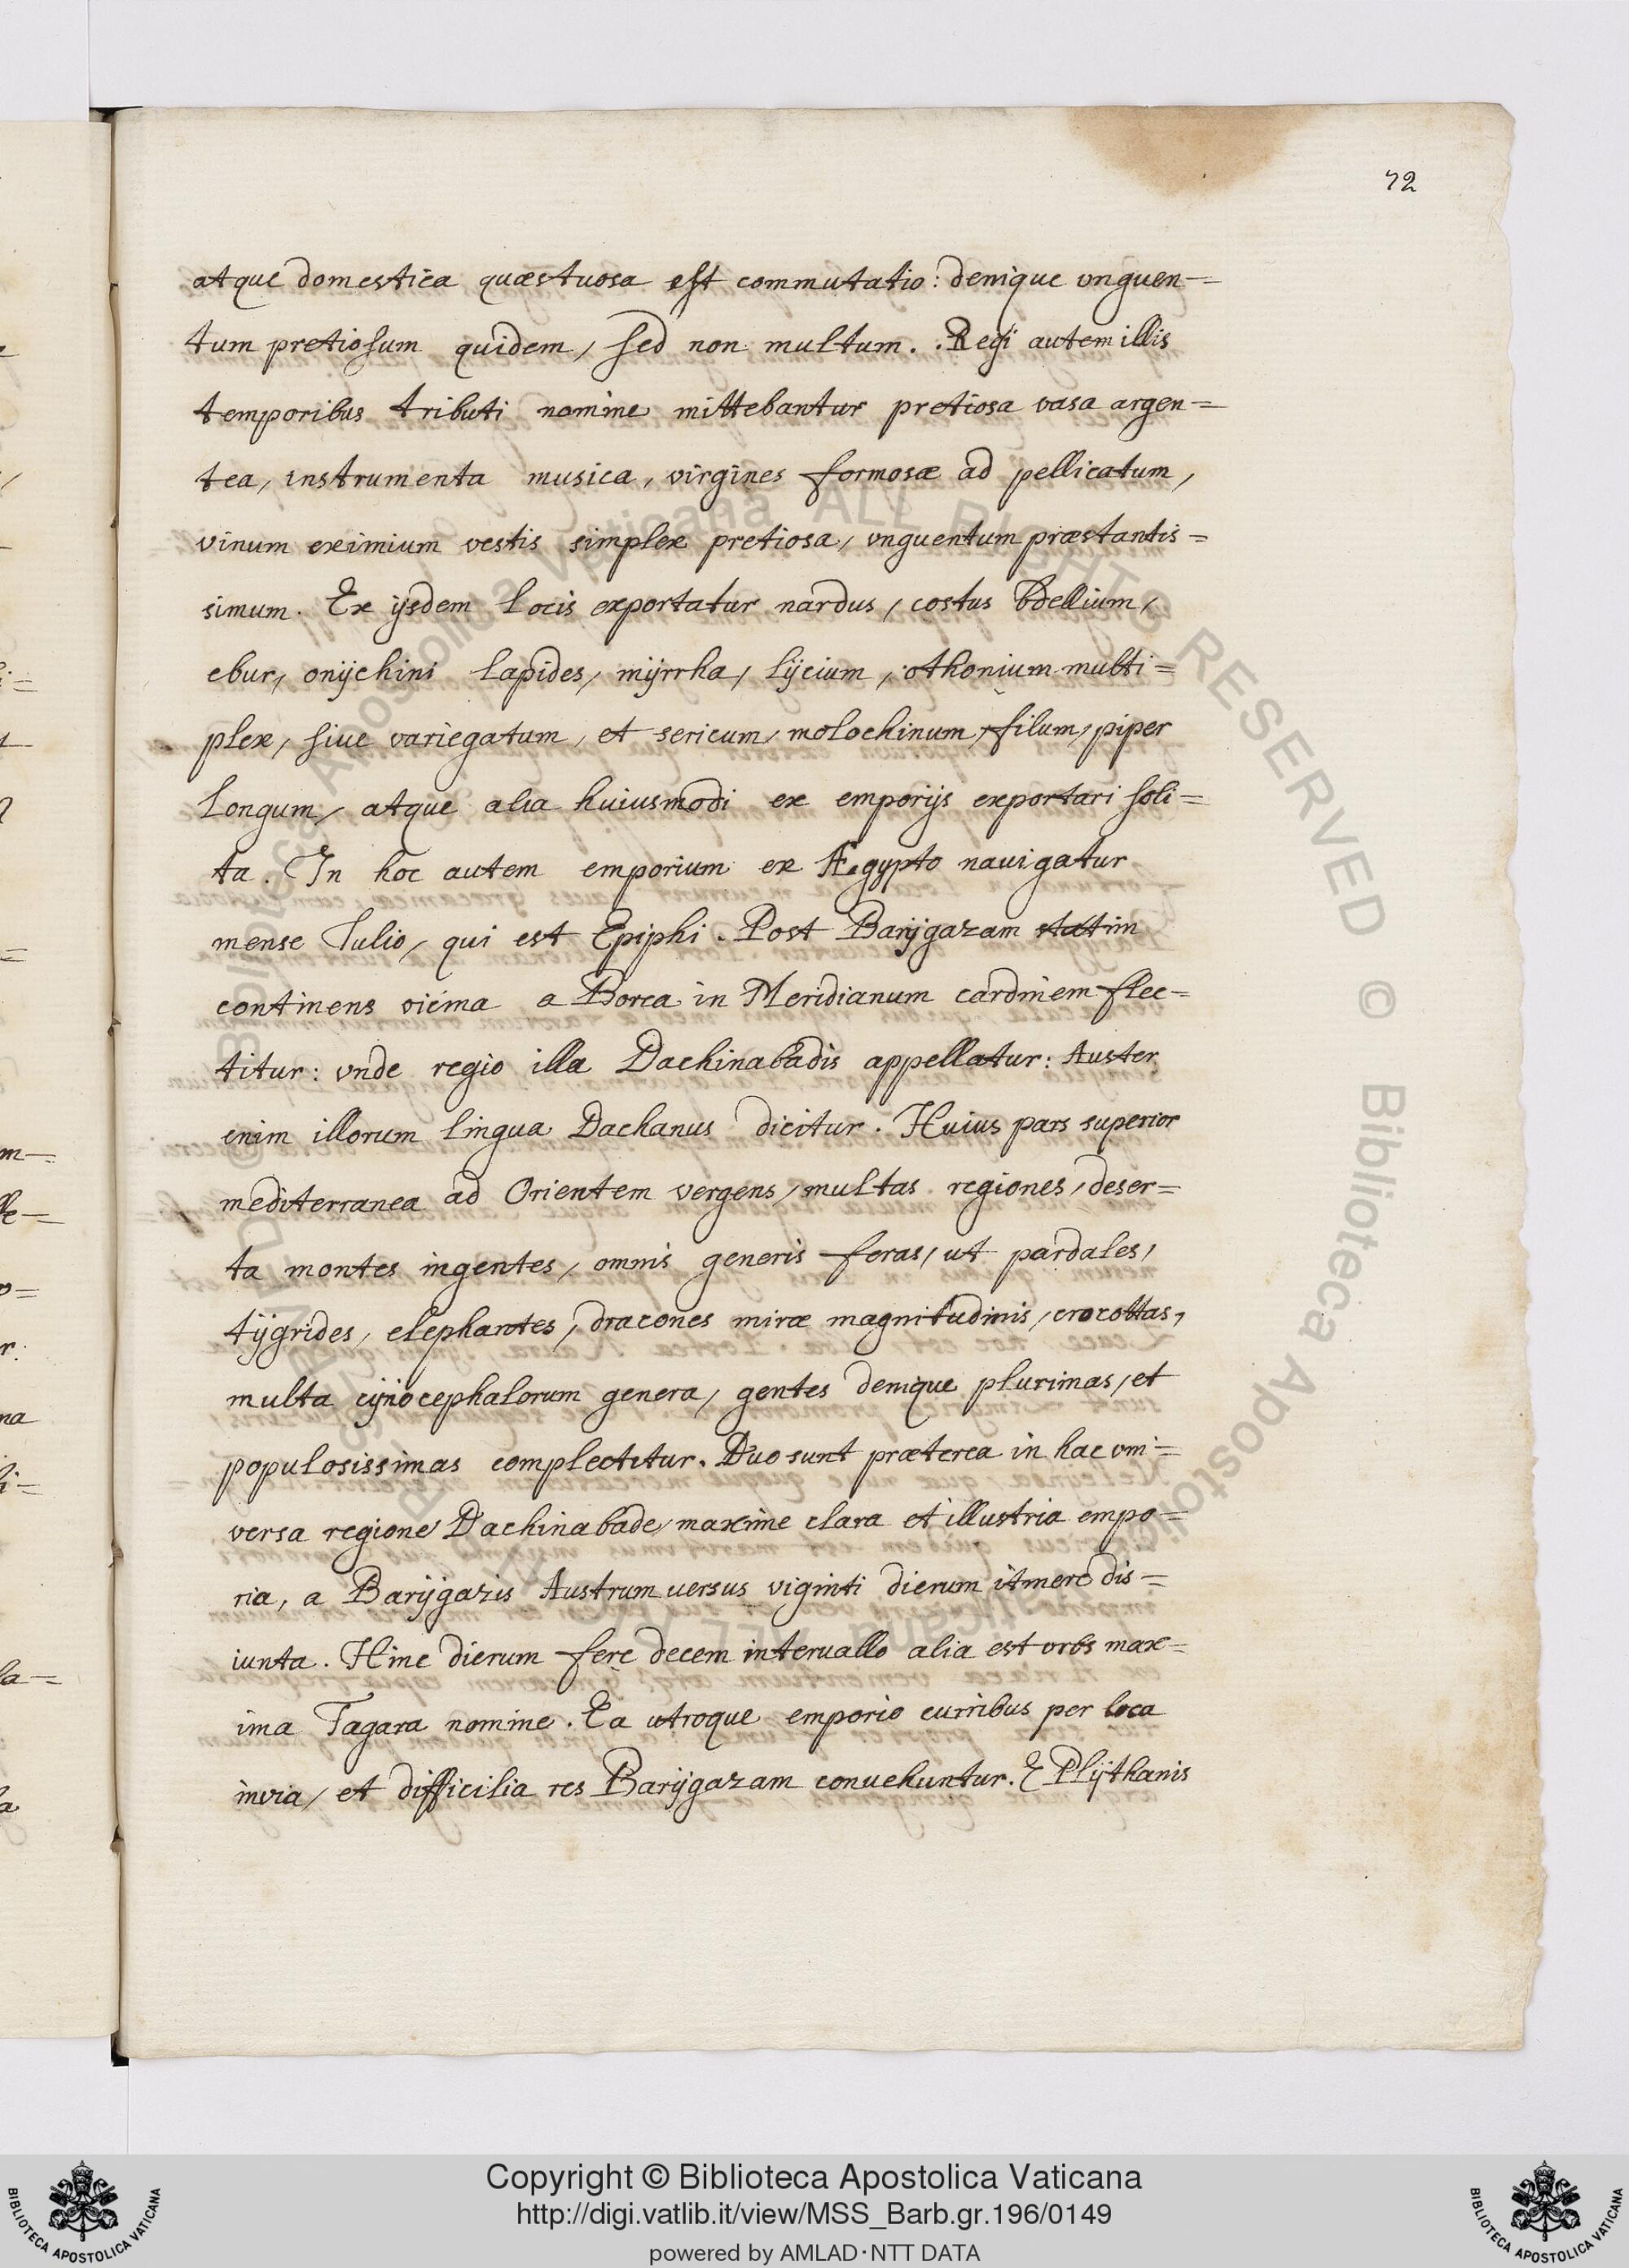 72
atque domestica quæstuosa est commutatio: denique vnguen=
tum pretiosum quidem, sed non multum. Regi autem illis
temporibus tributi nomine mittebantur pretiosa vasa argen=
tea, instrumenta musica, virgines formosæ ad pellicatum,
vinum eximium vestis simplex pretiosa, vnguentum præstantis=
simum. Ex ijsdem locis exportatur nardus, costus bdellium,
ebur, onÿchini lapides, mÿrrha, lÿcium, othonium multi=
plex, siue variegatum, et sericum, molochinum, filum, piper
longum, atque alia huiusmodi ex emporijs exportari soli=
ta. In hoc autem emporium ex Ægypto nauigatur
mense Iulio, qui est Epiphi. Post Barÿgazam statim
continens vicina a Borea in Meridianum cardinem flec=
titur: vnde regio illa Dachinabadis appellatur: Auster
enim illorum lingua Dachanus dicitur. Huius pars superior
mediterranea ad Orientem vergens, multas regiones, deser=
ta montes ingentes, omnis generis feras, ut pardales,
tÿgrides, elephantes, dracones miræ magnitudinis, crocottas,
multa cÿnocephalorum genera, gentes denique plurimas, et
populosissimas complectitur. Duo sunt præterea in hac vni=
versa regione Dachinabade, maxime clara et illustria empo=
ria, a Barÿgazis Austrum uersus viginti dierum itinere dis=
iuncta. Hinc dierum fere decem interuallo alia est vrbs max=
ima Tagara nomine. Ea utroque emporio curribus per loca
invia, et difficilia res Barÿgazam conuehuntur. E Plÿthanis
Copyright © Biblioteca Apostolica Vaticana
http://digi.vatlib.it/view/MSS_Barb.gr.196/0149
powered by AMLAD·NTT DATA
BIBLIOTECA APOSTOLICA VATICANA
BIBLIOTECA APOSTOLICA VATICANA